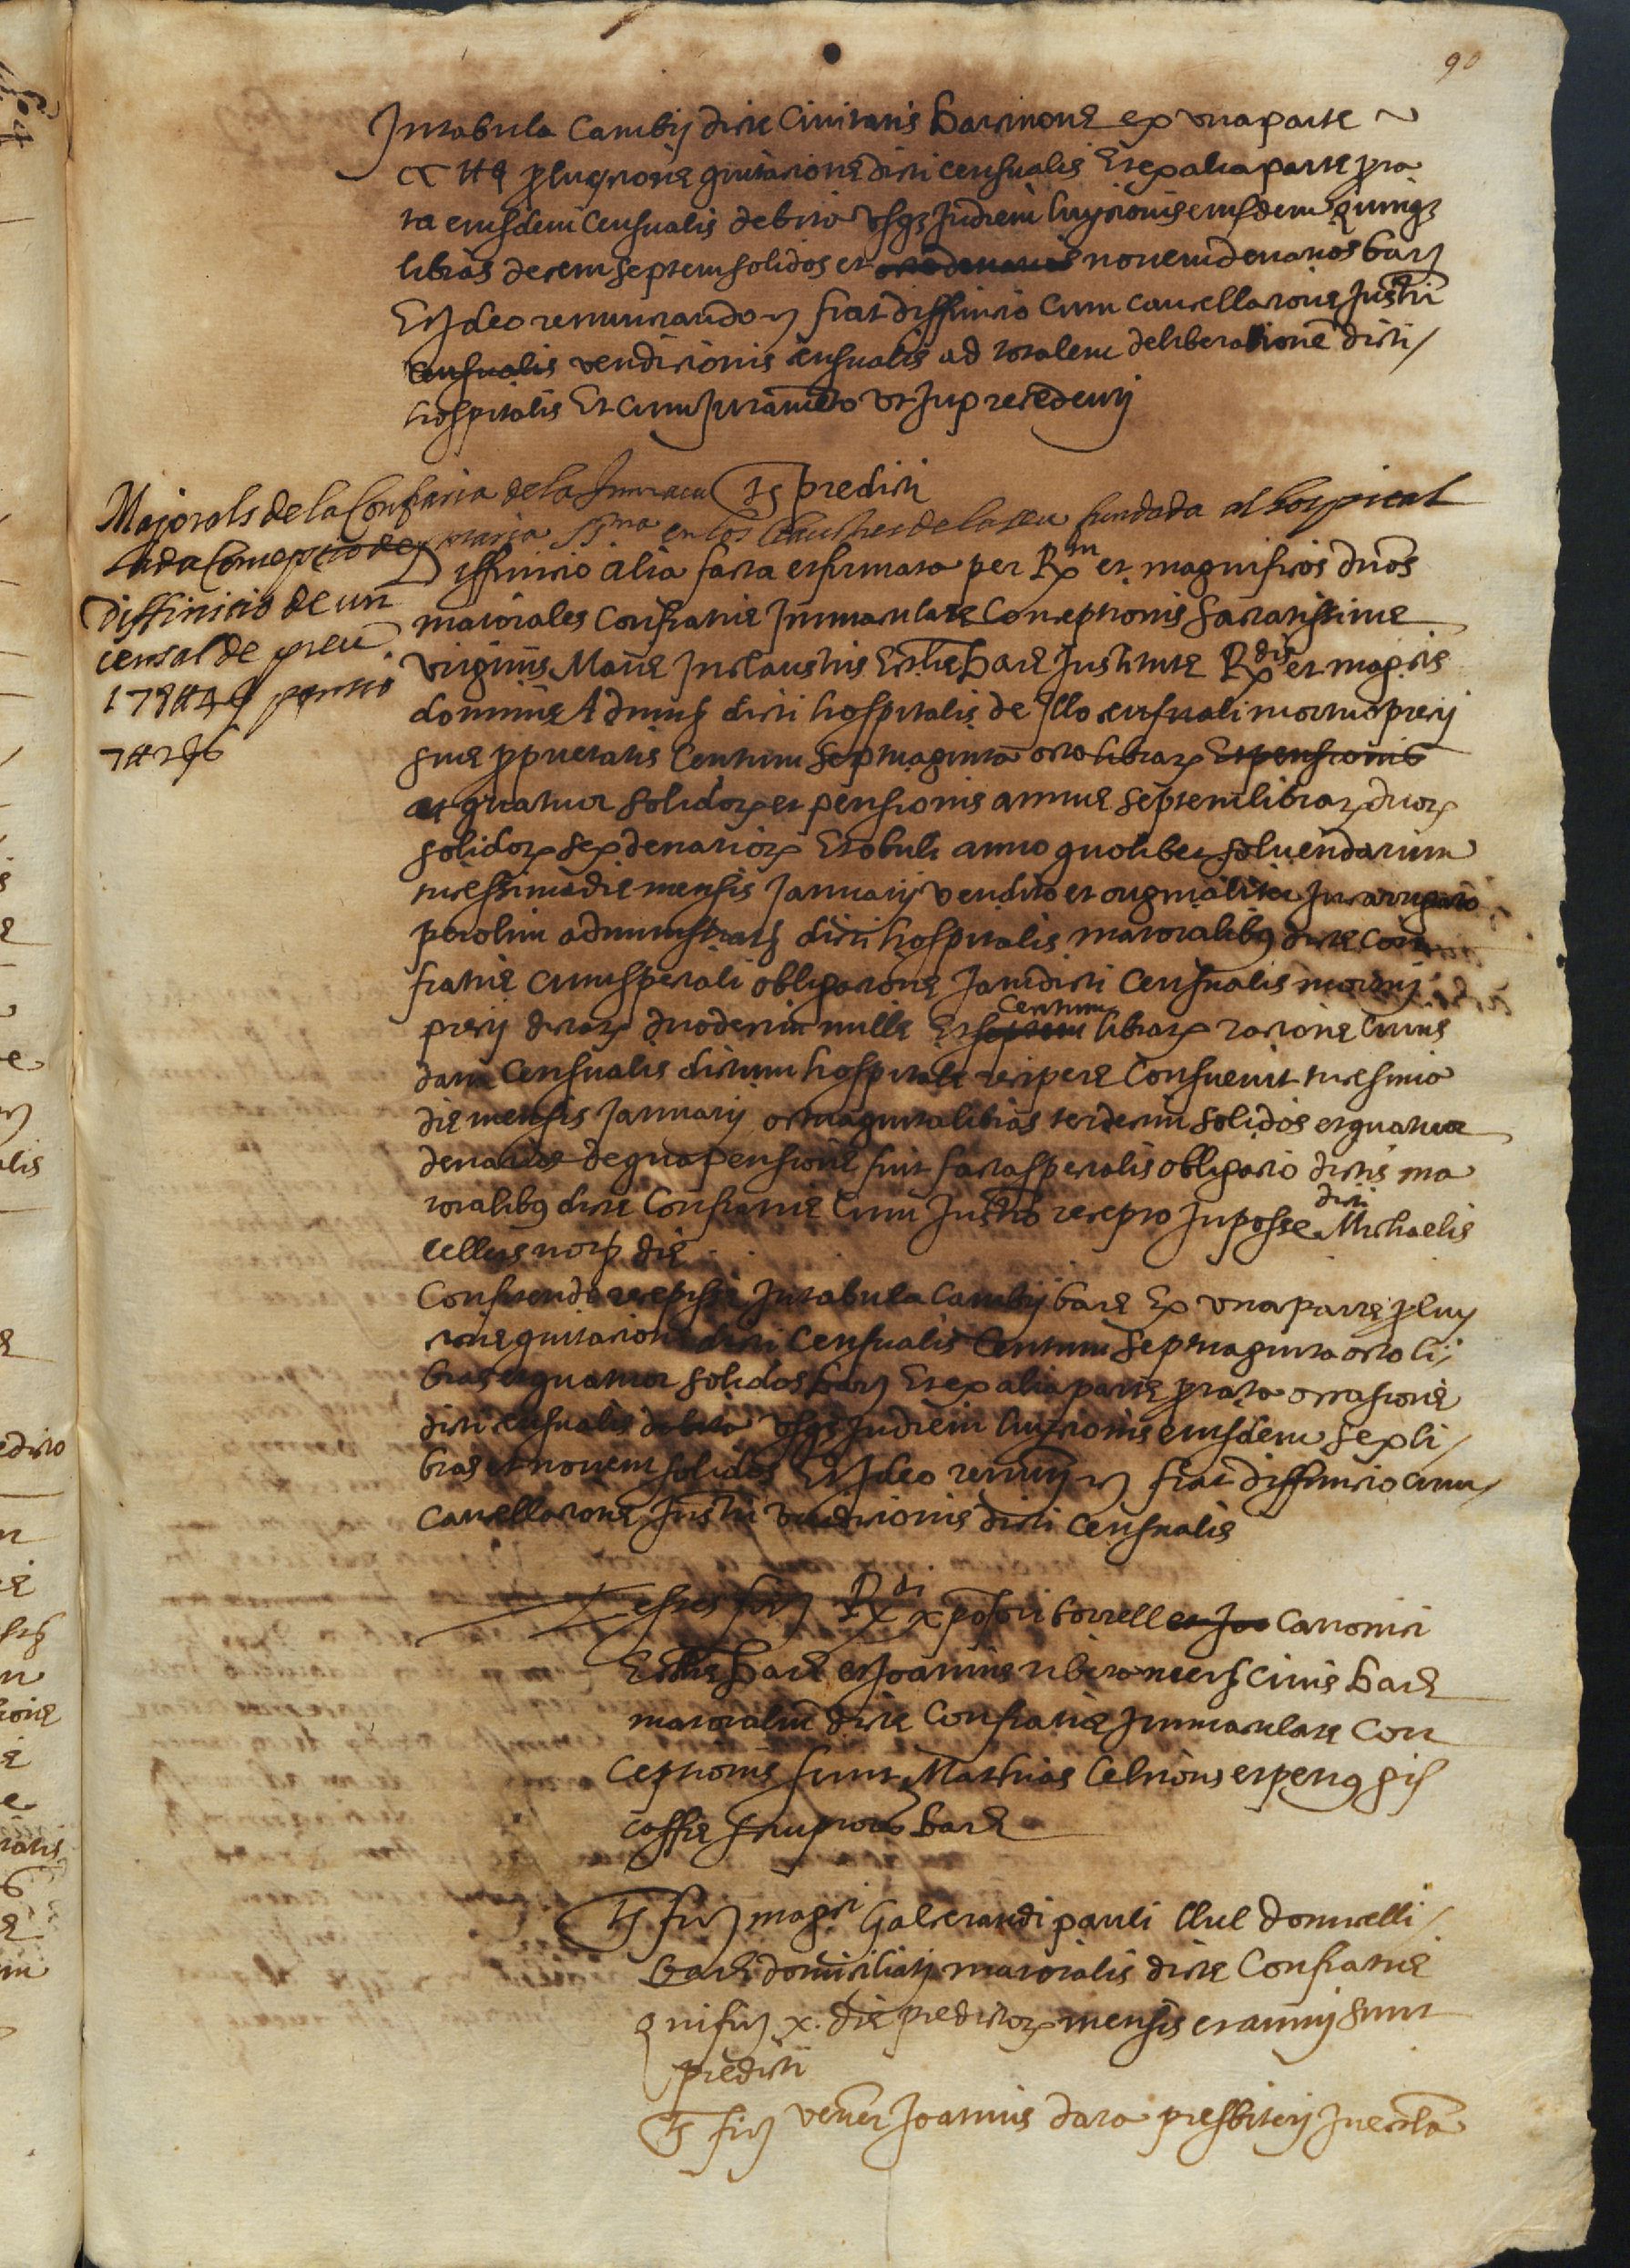 90
In tabula Cambij dicte Civitatis Barcinone ex una parte
pro luytione quitatione dicti censualis Et ex alia parte pro ra
ta eiusdem censualis debita usq3 In diem luytionis eiusdem quinq3
libras decem septem solidos et octo denarios novem denarios barz
Et Ideo renunciando z fiat diffinitio cum cancellatione Instri
censualis venditionis censualis ad totalem deliberationē dicti
hospitalis Et cum Iuramēto ut In precedenti
Ts predicti
Majorals de la Confraria de la Immacu
lada Conceptio de maria Sma en los Claustres de la seu fundada al hospital
Diffinicio de un
censal de preu
178 ll 4 s pensio
7 ll 2 s 6
Diffinitio alia facta et firmata per Rm et magnificos dnos
maiorales Confratrie Immaculate Conceptionis Sacratissime
virginis Marie In claustris Ecclie Bare Institute Rdis et magcis
dominis Adminis dicti hospitalis de Illo censuali mortuo precij
sive proprietatis Centum Septuaginta octo librar Et pensionis
et quatuor solidor et pensionis annue septem librar duor
solidor sex denarior Et oboli anno quolibet solvendarum
tricessimo die mensis Januarij vendito et originaliter In carricato
per olim administrat dicti hospitalis maioralib9 dicte Con
fratrie cum speciali obligatione Jamdicti Censualis mortuj
precij dictar duodecim mille Et septem Centum librar ratione Cuius
dam Censualis dictum hospitale recipere Consuevit tricesimo
die mensis Januarij octuaginta libras terdecim solidos et quatuor
denarios de qua pensione fuit facta specialis obligatio dictis ma
ioralib9 dicte Confratrie Cum Instro recepto In posse dicti Michaelis
celles norj die
Confitendo recepisse In tabula Cambij bare Ex una parte pro luy
tione quitatione dicti Censualis Centum Septuaginta octo li
bras et quatuor solidos barz Et ex alia parte pro rata occasione
dicti censualis debita usq3 In diem luytionis eiusdem sex li
bras et novem solidos Et Ideo renuncij z fiat diffinitio cum
cancellatione Instri venditionis dicti Censualis
Testes firz Rdi xpofori borrell et Joa Canonici
Ecclie Bare et Joannis ribera mercs civis bare
maioraliu dicte Confratrie Immaculate Con
ceptionis sunt Mathias et petrus
scriptores bare
Ts firz magci Galcerandi pauli llul domicelli
bare domiciliatj maioralis dicte Confratrie
qui firz x. die predictor mensis et annj sunt
predicti
Ts firz vener Joannis presbiterj In ecclia